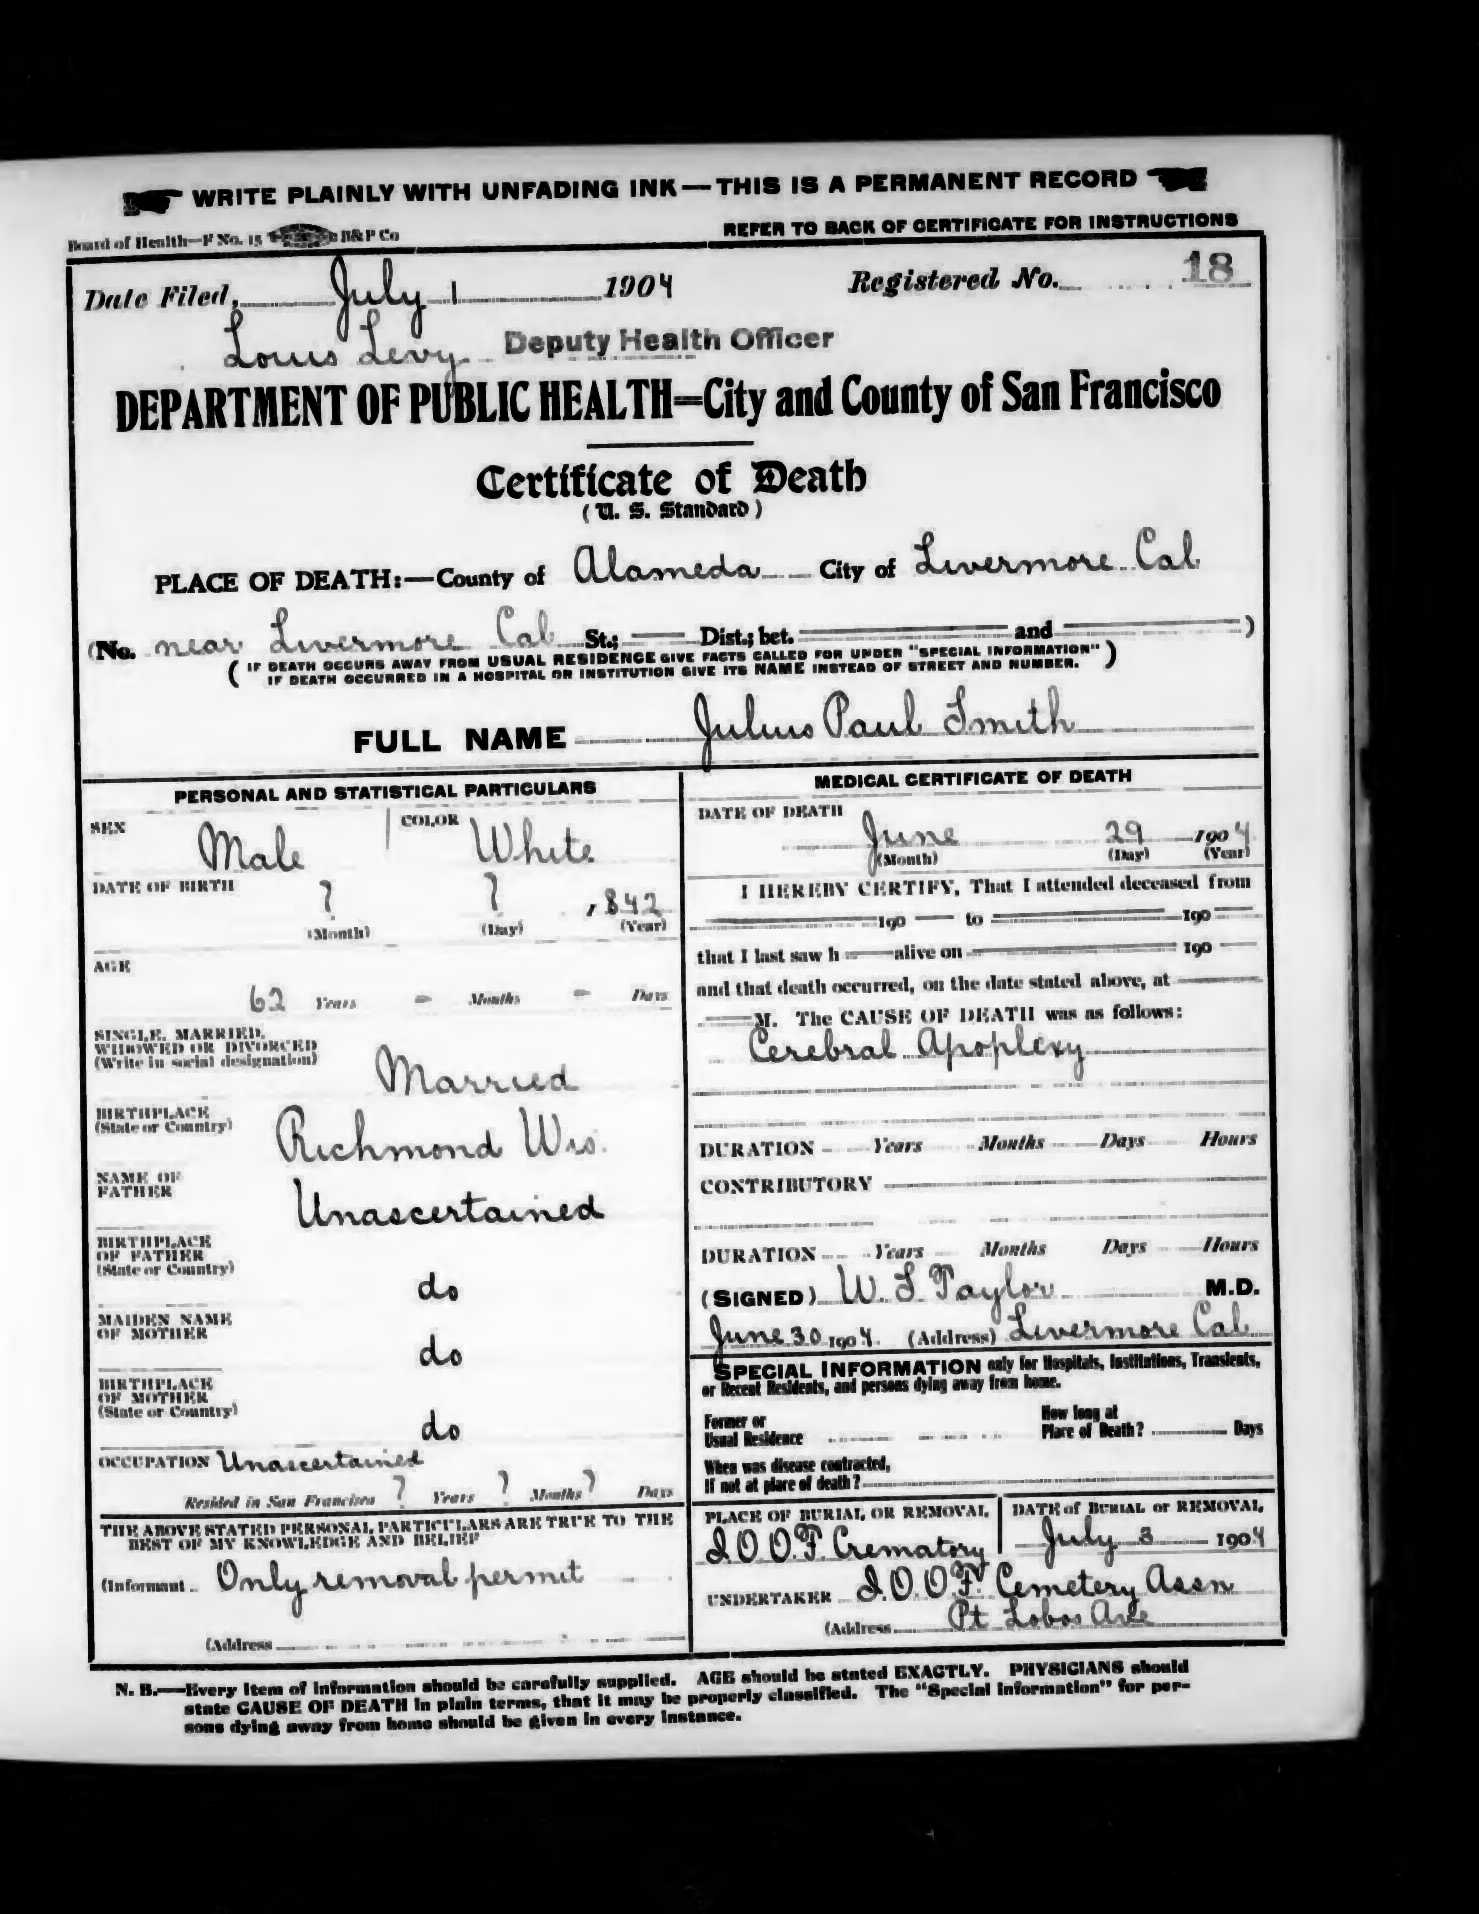 WRITE PLAINLY WITH UNFADING INK — THIS IS A PERMANENT RECORD
Board of Health—F No. 15 B&P Co
REFER TO BACK OF CERTIFICATE FOR INSTRUCTIONS
Date Filed, July 1 1904 Registered No. 18
Louis Levy Deputy Health Officer
DEPARTMENT OF PUBLIC HEALTH=City and County of San Francisco
Certificate of Death
(U. S. Standard)
PLACE OF DEATH:—County of Alameda City of Livermore Cal
(No. near Livermore Cal St.; Dist.; bet. and )
( IF DEATH OCCURS AWAY FROM USUAL RESIDENCE GIVE FACTS CALLED FOR UNDER "SPECIAL INFORMATION"
IF DEATH OCCURRED IN A HOSPITAL OR INSTITUTION GIVE ITS NAME INSTEAD OF STREET AND NUMBER. )
FULL NAME Julius Paul Smith
PERSONAL AND STATISTICAL PARTICULARS
SEX Male COLOR White
DATE OF BIRTH ? ? , 842
(Month) (Day) (Year)
AGE
62 Years - Months - Days
SINGLE, MARRIED,
WIDOWED OR DIVORCED
(Write in social designation)
Married
BIRTHPLACE
(State or Country)
Richmond Wis.
NAME OF
FATHER
Unascertained
BIRTHPLACE
OF FATHER
(State or Country)
do
MAIDEN NAME
OF MOTHER
do
BIRTHPLACE
OF MOTHER
(State or Country)
do
OCCUPATION Unascertained
Resided in San Francisco ? Years ? Months ? Days
THE ABOVE STATED PERSONAL PARTICULARS ARE TRUE TO THE
BEST OF MY KNOWLEDGE AND BELIEF
(Informant Only removal permit
(Address
MEDICAL CERTIFICATE OF DEATH
DATE OF DEATH
June 29 1904
(Month) (Day) (Year)
I HEREBY CERTIFY, That I attended deceased from
190 to 190
that I last saw h alive on 190
and that death occurred, on the date stated above, at
M. The CAUSE OF DEATH was as follows:
Cerebral Apoplexy
DURATION Years Months Days Hours
CONTRIBUTORY
DURATION Years Months Days Hours
(SIGNED) W. S Taylor M.D.
June 30 1904. (Address) Livermore Cal
SPECIAL INFORMATION only for Hospitals, Institutions, Transients,
or Recent Residents, and persons dying away from home.
Former or
Usual Residence
How long at
Place of Death? Days
When was disease contracted,
If not at place of death?
PLACE OF BURIAL OR REMOVAL
I.O.O.F. Crematory
DATE of BURIAL or REMOVAL
July 3 1904
UNDERTAKER I.O.O.F. Cemetery Assn
(Address Pt Lobos Ave
N. B.—Every item of information should be carefully supplied. AGE should be stated EXACTLY. PHYSICIANS should
state CAUSE OF DEATH in plain terms, that it may be properly classified. The "Special Information" for per-
sons dying away from home should be given in every instance.